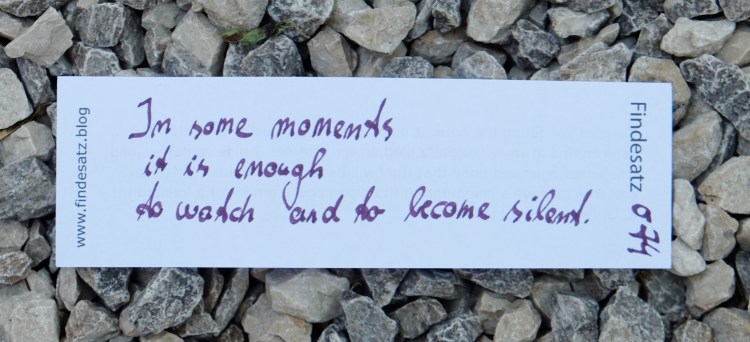 www.findesatz.blog
In some moments
it is enough
to watch and to become silent.
Findesatz 074